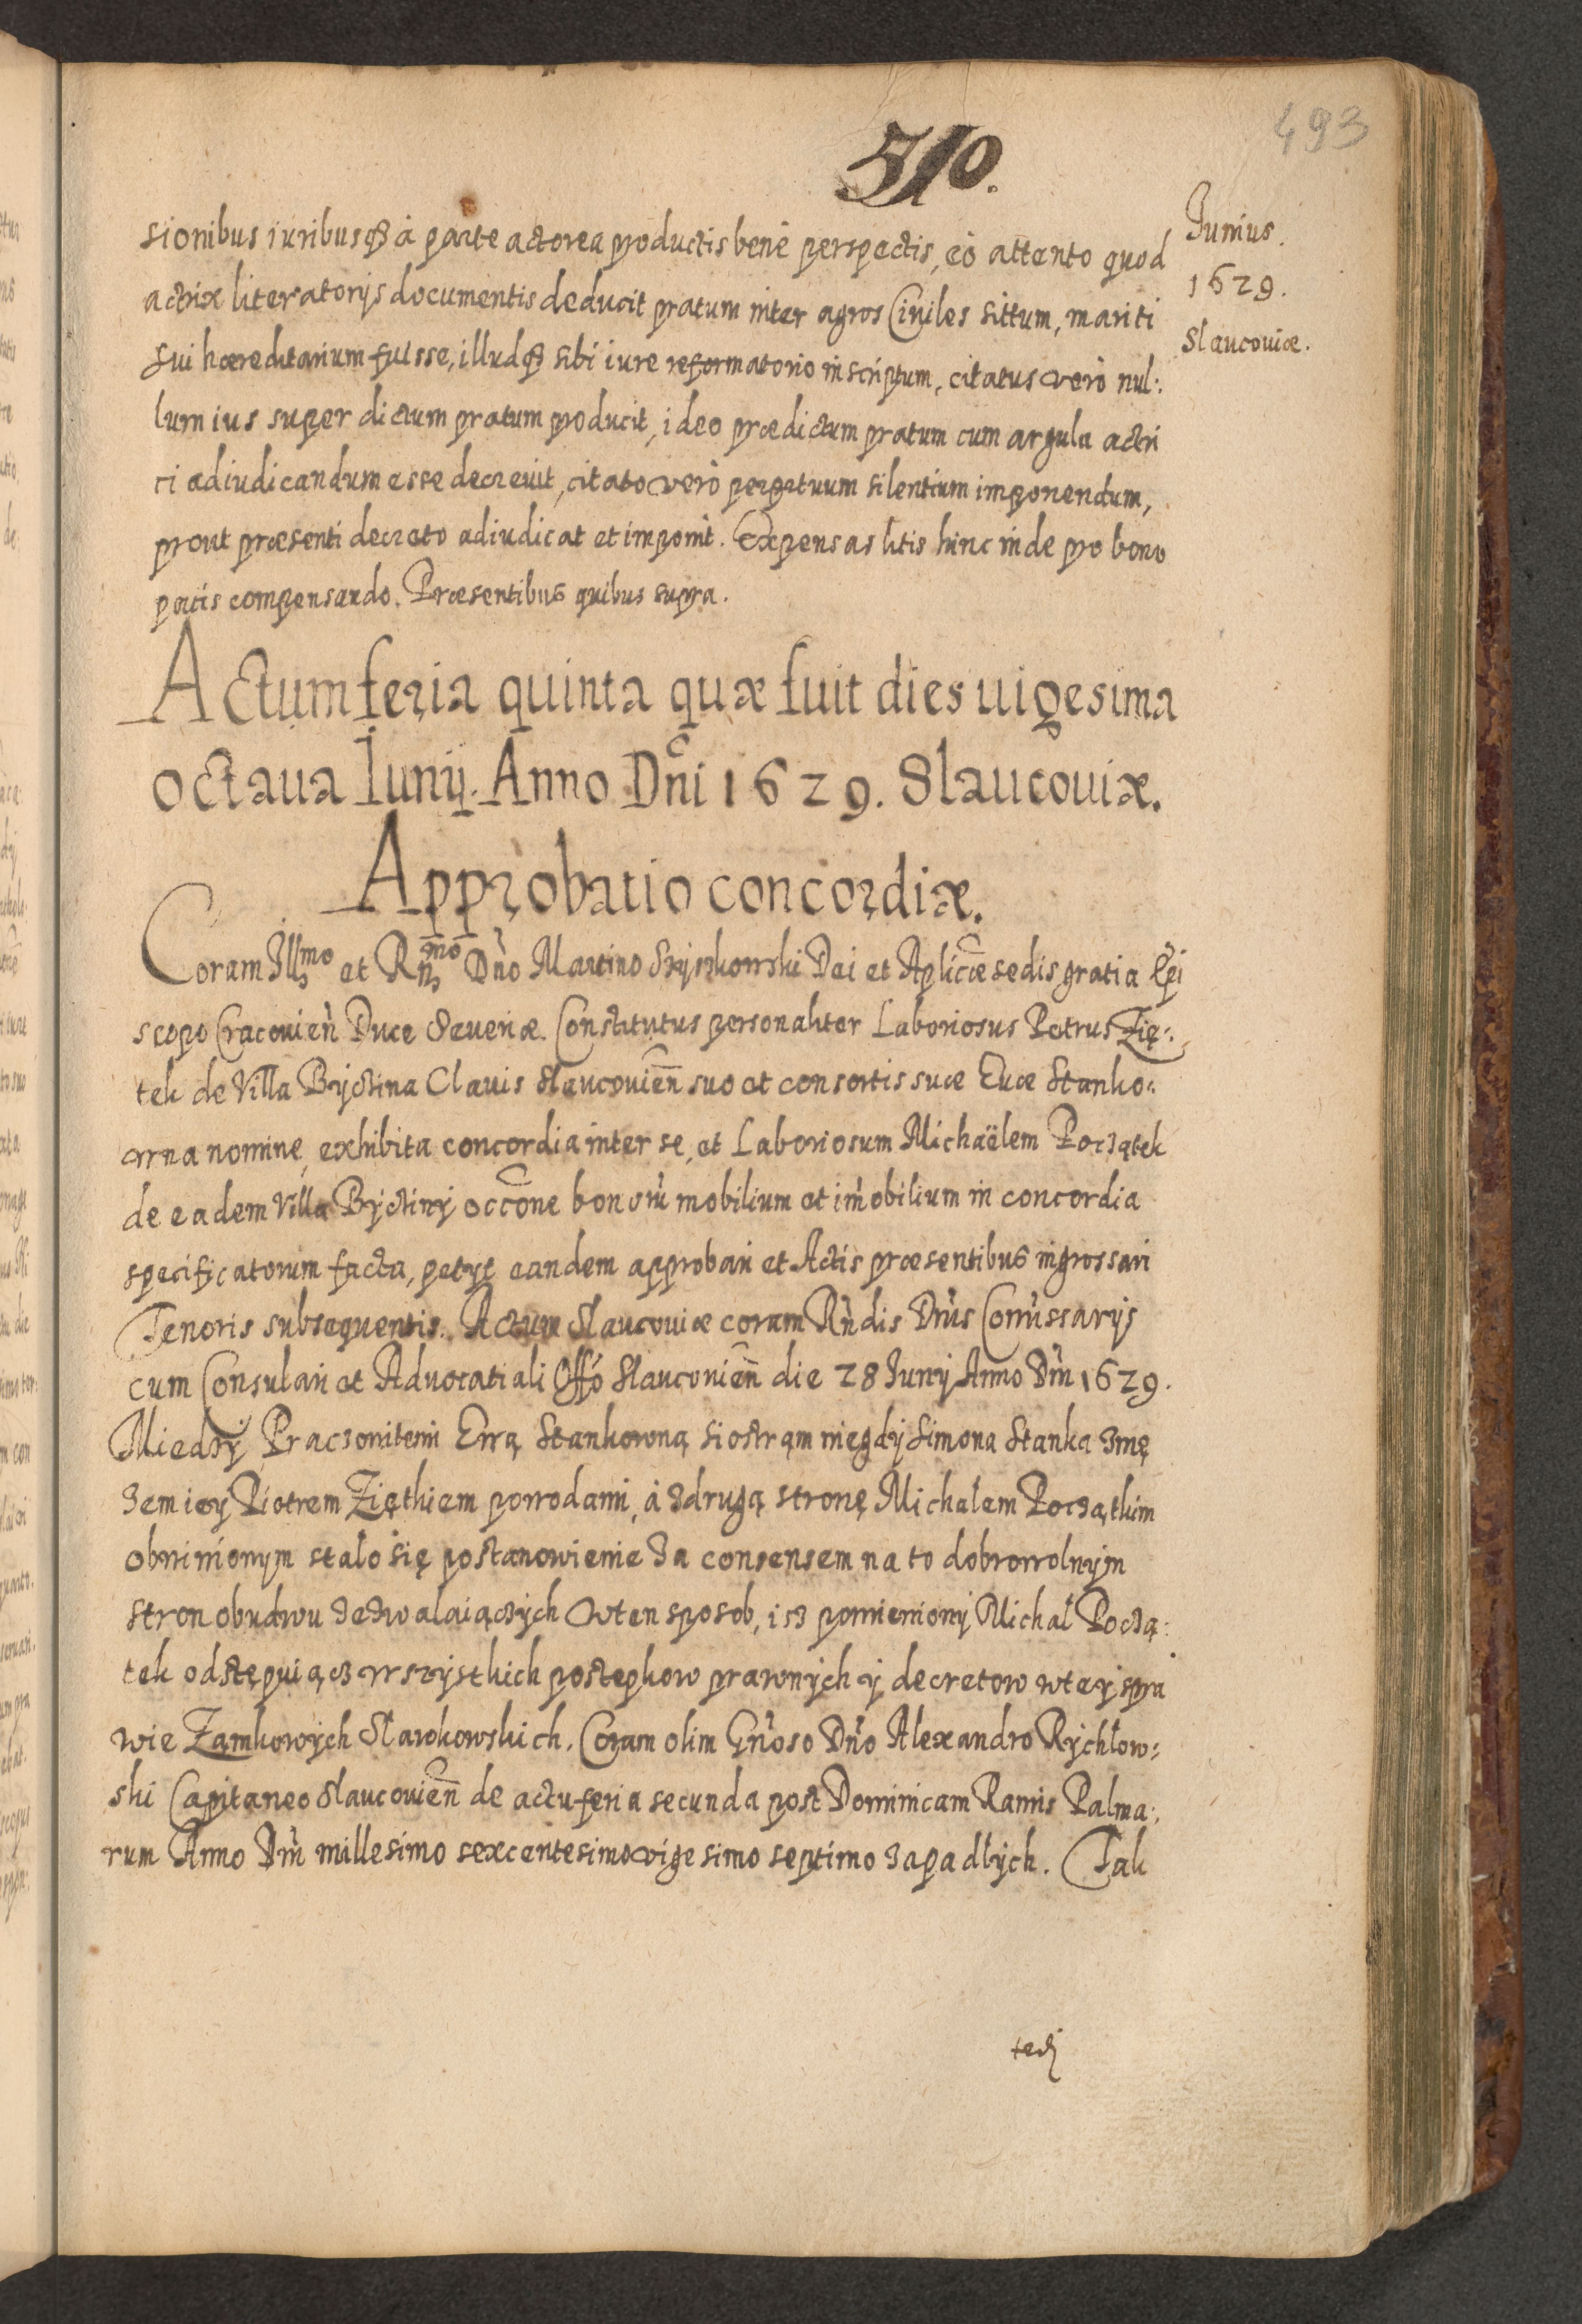 493
510.
Junius.
1629.
Slaucouiæ.
sionibus iuribusq3 à parte actorea productis bene perspectis, eò attento quod
actrix literatorijs documentis deducit pratum inter agros Ciuiles sittum, mariti
sui hæreditarium fuisse, illudq3 sibi iure reformatorio inscriptum, citatus verò nul:
lum ius super dictum pratum producit, ideo prædictum pratum cum argula actri
ci adiudicandum esse decreuit, citato verò perpetuum silentium imponendum,
prout præsenti decreto adiudicat et imponit. Expensas litis hinc inde pro bono
pacis compensando. Præsentibus quibus supra.
Actum feria quinta quæ fuit dies uigesima
octaua Iunij. Anno Dñi 1629. Slaucouiæ.
Approbatio concordiæ.
Coram Illmo et Rmo Dño Martino Szyszkowski Dei et Aplicæ sedis gratia Epi
scopo Cracouień Duce Seueriæ. Constitutus personaliter Laboriosus Petrus Zię:
tek de Villa Byctina Clauis Slaucouień suo et consortis suæ Euæ Stanko:
wna nomine, exhibita concordia inter se, et Laboriosum Michaëlem Początek
de eadem Villa Byctiny occone bonorũ mobilium et im̃obilium in concordia
specificatorum facta, petyt eandem approbari et Actis præsentibus ingrossari
Tenoris subsequentis. Actum Slaucouiæ coram Rñdis Dñis Com̃issarijs
cum Consulari et Aduocatiali Offo Slaucouień die 28 Iunij Anno Dñi 1629.
Miedzy Pracowitemi Ewą Stankowną siostrąm niegdy Simona Stanka zmę
zem iey Piotrem Ziętkiem powodami, à zdrugą stronę Michałem Początkim
obwinionym stało się postanowienie za consensem na to dobrowolnym
stron obudwu zezwalaiączych wten sposob, isz pomieniony Michał Począ:
tek odstępuiącz wszystkich postepkow prawnych y decretow wtey spra
wie Zamkowych Sławkowskich. Coram olim Gñoso Dño Alexandro Rychłow:
ski Capitaneo Slaucouień de actu feria secunda post Dominicam Ramis Palma:
rum Anno Dñi millesimo sexcentesimo vigesimo septimo zapadłych. Tak
tedy